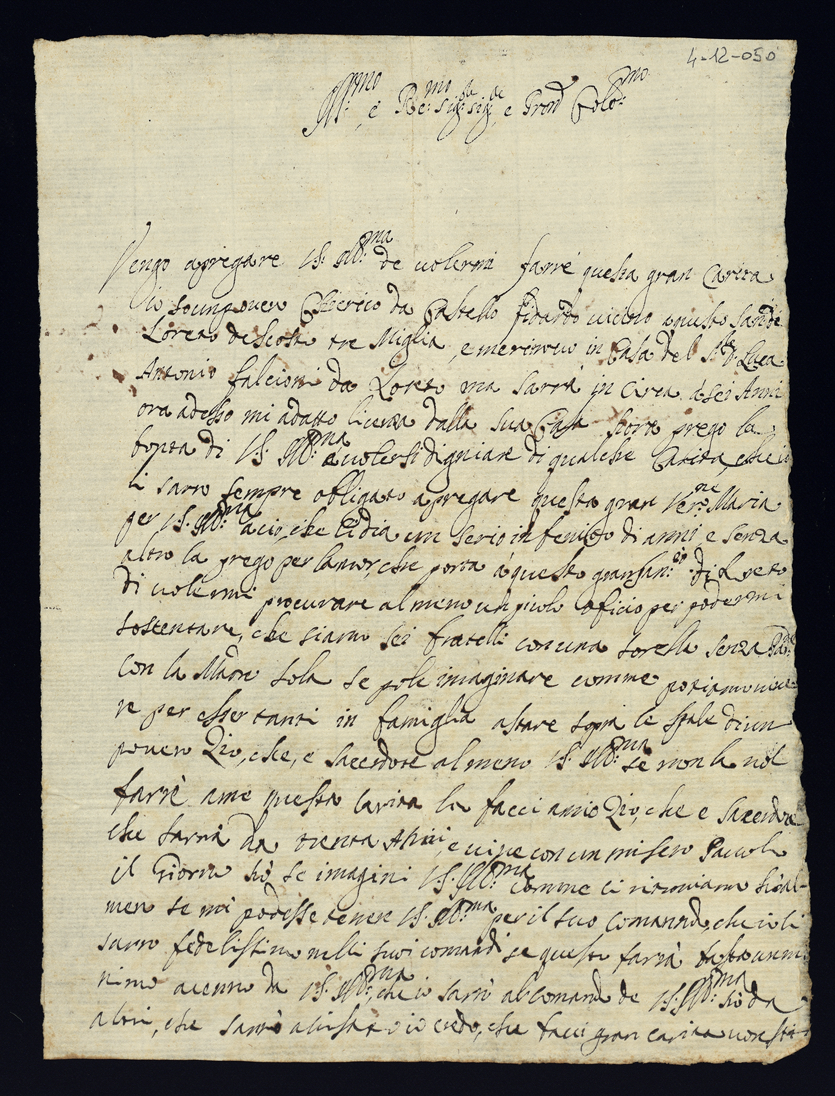 4-12-050
Ill:mo e Re:mo Sig: Sig:re e Pron Colo:mo
Vengo apregare VS: Ill:ma de volermi farre questa gran Carita
io son un povero Chierico da Castello fidardo vicino a questa Santa
Loreto discosto tre Miglia, e meritrovo in Casa del Luca
Antonio falcioni da Loreto ma sarrà in circa a sei Anni
ora adesso mi adatto licenza dalla sua Casa prego la
bonta di VS: Ill:ma a volersi digniare di qualche Carita, che io
li sarro sempre obbligato apregare questa gran Ver:ne Maria
per VS: Ill:ma acio, che li dia un serio infenito di anni e senza
altro la prego per lamor, che porta à questo gran di Loreto
di volermi procurare al meno un picolo oficio per podermi
sostentare, che siamo sei fratelli con una sorella senza Padre
con la Madre sola se pole imaginare comme potiamo vive
re per esser tanti in famiglia astare sopra le spale di un
povero Zio, che, e Sacerdote al meno VS: Ill:ma se non la vol
farrè ame questa carita la facci amio Zio, che e Sacerdote
che sarrà da trenta Anni, e vive con un misero Paccolo
il Giorno siò se imagini VS: Ill:ma comme ci ritroviamo al
meno se mi podesse tenere VS: Ill:ma per il suo Comanno, che io li
sarro fedelissimo nelli suoi comandi se questo farrà basta un mi
nimo acenno da VS: Ill:ma che io sarrò al comando de VS: Ill:ma siò da
altri, che sarrò avisato io credo, che facci gran carita